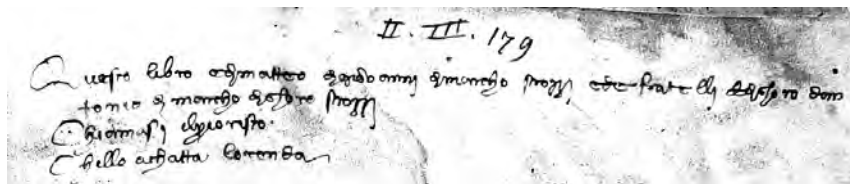 II. III. 179
Questo libro edimatteo digiovannj dimarcho strozzj ede fratellj dan
tonio di marcho strozzj
Chiamasj elpriorista.
Chello achatta lorenda